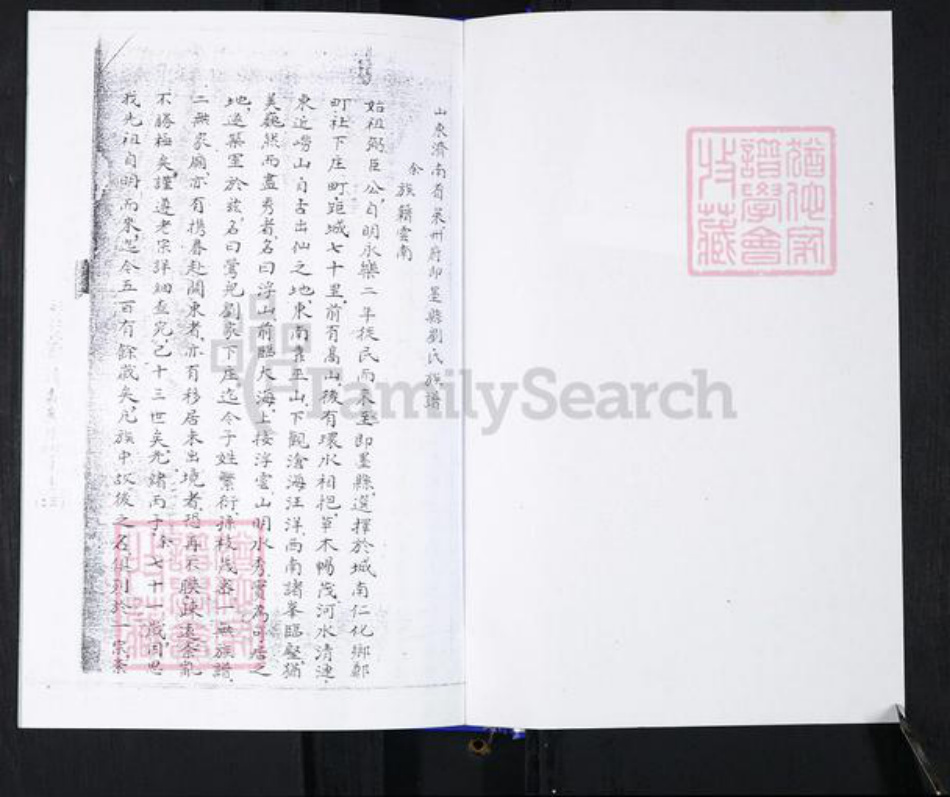 山東濟南省萊州府即墨縣劉氏族譜
余族籍雲南
始祖弼臣公自明永樂二年徙民而來至即墨縣選擇於城南仁化鄉鄭
町社下庄町距城七十里前有高山後有環水相抱草木暢茂河水清漣
東近嶗山自古出仙之地東南靠平山下觀滄海汪洋西南諸峯臨壑猶
美巍然而盡秀者名曰浮山前臨大海上接浮雲山明水秀實為可居之
地遂築室於茲名曰鶯兒劉家下庄迄今子姓繁衍孫枝茂密一無族譜
二無家廟亦有携眷赴關東者亦有移居未出境者恐再不聯疎遠紊亂
不勝極矣謹遵老宗詳細查究已十三世矣光緒丙子余七十一歲因思
我先祖自明而來迄今五百有餘歲矣凡族中故後之名俱列於一宗
猶他家譜學會收藏
FamilySearch
猶他家譜學會收藏